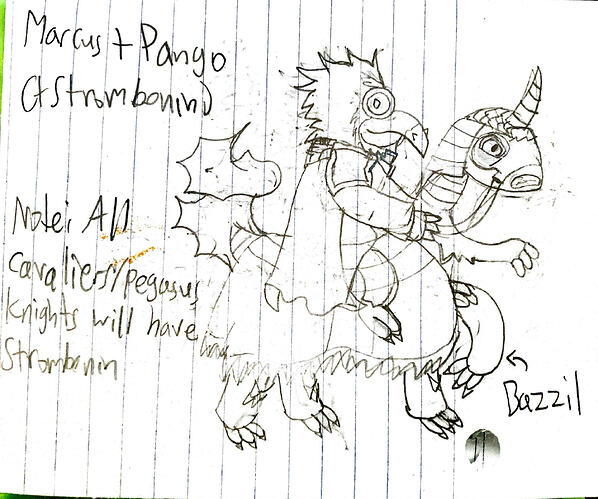 Marcus + Pango
(+Strombonin)
Note: All
cavaliers/pegasus
knights will have
Strombonin
Bazzil